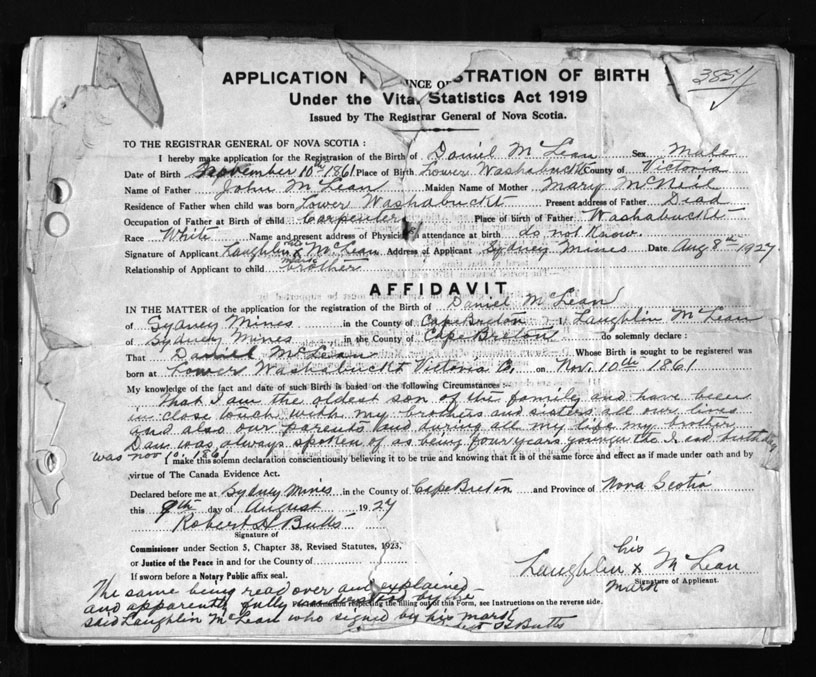 APPLICATION F STRATION OF BIRTH
INCE O
Under the Vital Statistics Act 1919
Issued by The Registrar General of Nova Scotia.
TO THE REGISTRAR GENERAL OF NOVA SCOTIA :
I hereby make application for the Registration of the Birth of Daniel McLean Sex Male
Date of Birth November 10th 1861 Place of Birth Lower Washabuckt County of Victoria
Name of Father John McLean Maiden Name of Mother Mary McNeil
Residence of Father when child was born Lower Washabuckt Present address of Father Dead
Occupation of Father at Birth of child Carpenter Place of birth of Father Washabuckt
Race White Name and present address of Physician attendance at birth do not Know.
Signature of Applicant Laughlin his x mark McLean Address of Applicant Sydney Mines Date Aug 8th 1927
Relationship of Applicant to child brother
AFFIDAVIT
IN THE MATTER of the application for the registration of the Birth of Daniel McLean
of Sydney Mines in the County of Cape Breton I Laughlin McLean
of Sydney Mines in the County of Cape Breton do solemnly declare :
That Daniel McLean Whose Birth is sought to be registered was
born at Lower Washabuckt Victoria Co. on Nov. 10th 1861
My knowledge of the fact and date of such Birth is based on the following Circumstances :-
That I am the oldest son of the family and have been
in close touch with my brothers and sisters all our lives
and also our parents and during all my life my brother
Dan was always spoken of as being four years younger tho I and birthday
was Nov 10. 1861
I make this solemn declaration conscientiously believing it to be true and knowing that it is of the same force and effect as if made under oath and by
virtue of The Canada Evidence Act.
Declared before me at Sydney Mines in the County of Cape Breton and Province of Nova Scotia
this 9th day of August 1927
Robert H Butts
Signature of
Commissioner under Section 5, Chapter 38, Revised Statutes, 1923,
or Justice of the Peace in and for the County of
If sworn before a Notary Public affix seal.
Laughlin his x mark McLean
Signature of Applicant.
For information respecting the filling out of this Form, see Instructions on the reverse side.
The same being read over and explained
and apparently fully understood by the
said Laughlin McLean who signed by his mark
Butts